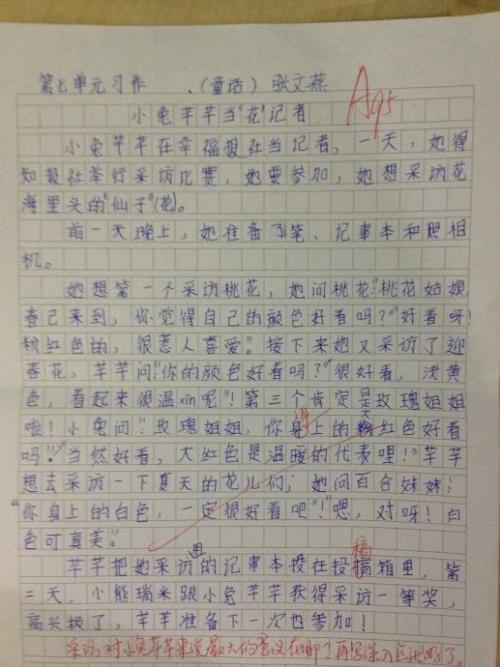 第七单元习作 、(童话) 张文燕
A 95
小兔芊芊当"花"记者
小兔芊芊在幸福报社当记者,一天,她得
知报社举行采访比赛,她要参加,她想采访花
海里头的"仙子"(花)。
前一天晚上,她准备了笔、记事本和照相
机。
她想第一个采访桃花,她问桃花:"桃花姑娘,
春已来到,你觉得自己的颜色好看吗?""好看呀!
粉红色的,很惹人喜爱。"接下来她又采访了迎
春花,芊芊问:"你的颜色好看吗?""很好看,浅黄
色,看起来很温和呢"!第三个肯定是玫瑰姐姐
啦!小兔问:"玫瑰姐姐,你身上的大红色好看
吗?""当然好看,大红色是温暖的代表哩!"芊芊
想去采访一下夏天的花儿们,她问百合妹妹:
"你身上的白色,一定很好看吧"!"嗯,对呀!白
色可真美"。
芊芊把她采访的记事本投在投稿箱里,第
二天,小熊瑞米跟小兔芊芊获得采访一等奖,
高头极了,芊芊准备下一次也参加!
采访对小兔芊芊来说最大的意义在哪?再写深入些就好了。